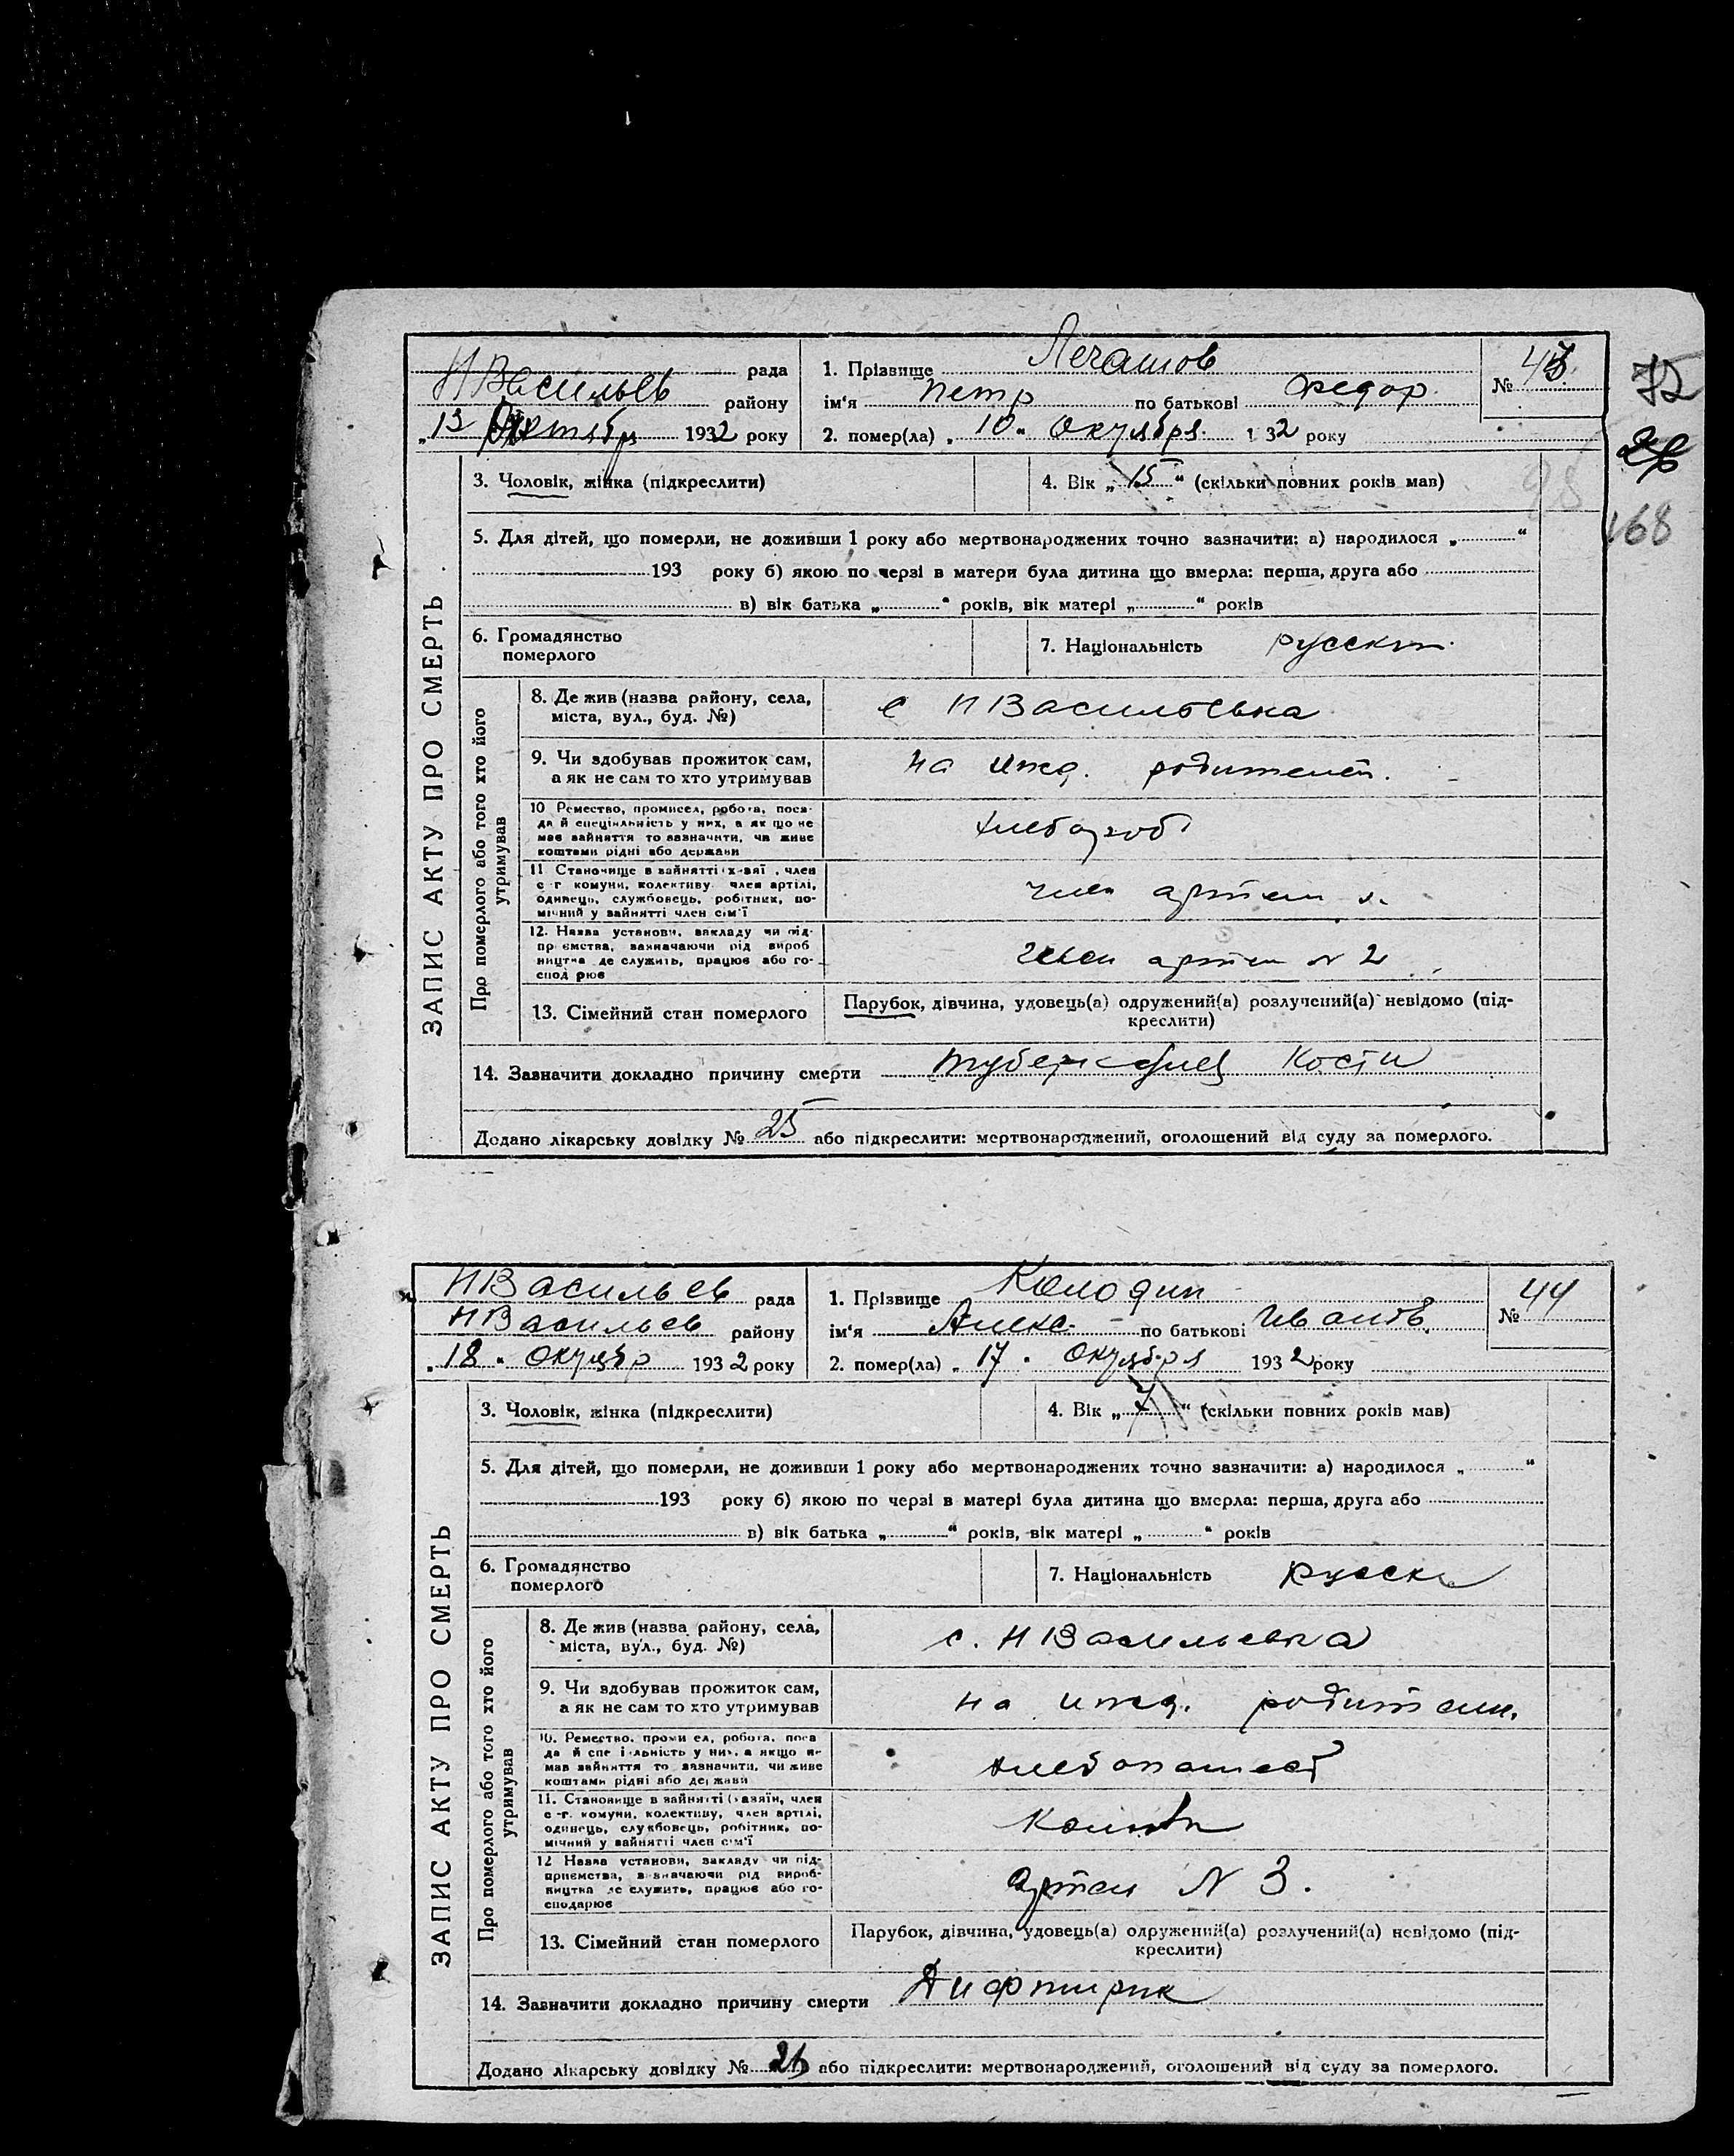 ЗАПИС АКТУ ПРО СМЕРТЬ
Н Васильев рада
району
13 Октябр 1932 року
1. Прізвище Легашов
ім'я Петр по батькові Федор.
2. помер(ла) „10“ Октября 1 32 року
№ 43
72
26
98
168
3. Чоловік, жінка (підкреслити)
4. Вік „15“ (скільки повних років мав)
5. Для дітей, що померли, не доживши 1 року або мертвонароджених точно зазначити: а) народилося „ “
193 року б) якою по черзі в матери була дитина що вмерла: перша, друга або
в) вік батька „ “ років, вік матері „ “ років
6. Громадянство
померлого
7. Національність русский
Про померлого або того хто його
утримував
8. Де жив (назва району, села,
міста, вул., буд. №)
с Н Васильевка
9. Чи здобував прожиток сам,
а як не сам то хто утримував
на ижд. родителей.
10 Ремество, промисел, робота, поса-
да й спеціяльність у них, а як що не
мав зайняття то зазначити, чи живе
коштами рідні або держави
хлебороб
11 Становище в зайнятті (х-зяї , член
с-г комуни, колективу член артілі,
одинець, службовець, робітник, по-
мічний у зайнятті член сім'ї
член артели
12. Назва установи, закладу чи під-
пр ємства, зазначаючи рід вироб
ництва де служить, працює або го-
спод рює
член артели N 2
13. Сімейний стан померлого
Парубок, дівчина, удовець(а) одружений(а) розлучений(а) невідомо (під-
креслити)
14. Зазначити докладно причину смерти туберкулез Кости
Додано лікарську довідку № 25 або підкреслити: мертвонароджений, оголошений від суду за померлого.
ЗАПИС АКТУ ПРО СМЕРТЬ
Н Васильев рада
Н Васильев району
„18“ Октябр 1932 року
1. Прізвище Колодин
ім'я Алекс. по батькові Иванов.
2. помер(ла) „17“ Октября 1932 року
№ 44
3. Чоловік, жінка (підкреслити)
4. Вік „7“ (скільки повних років мав)
5. Для дітей, що померли, не доживши 1 року або мертвонароджених точно зазначити: а) народилося „ “
193 року б) якою по черзі в матері була дитина що вмерла: перша, друга або
в) вік батька „ “ років, вік матері „ “ років
6. Громадянство
померлого
7. Національність русски
Про померлого або того хто його
утримував
8. Де жив (назва району, села,
міста, вул., буд. №)
с. Н Васильевка
9. Чи здобував прожиток сам,
а як не сам то хто утримував
на ижд. родители.
10. Ремество, проми ел, робота, поса
да й спе і льність у них, а якщо н-
мав зайняття то зазначити, чи живе
коштами рідні або держави
хлебопашест
11. Становище в зайнятті (хазяїн, член
с-г. комуни, колективу, член артілі,
одинець, службовець, робітник, по-
мічний у зайнятті член сім'ї
12 Назва установи, закладу чи під-
приємства, зазначаючи рід вироб-
ництва де служить, працює або го-
сподарює
Артели N 3.
13. Сімейний стан померлого
Парубок, дівчина, удовець(а) одружений(а) розлучений(а) невідомо (під-
креслити)
14. Зазначити докладно причину смерти Дифтирик
Додано лікарську довідку № 26 або підкреслити: мертвонароджений, оголошений від суду за померлого.